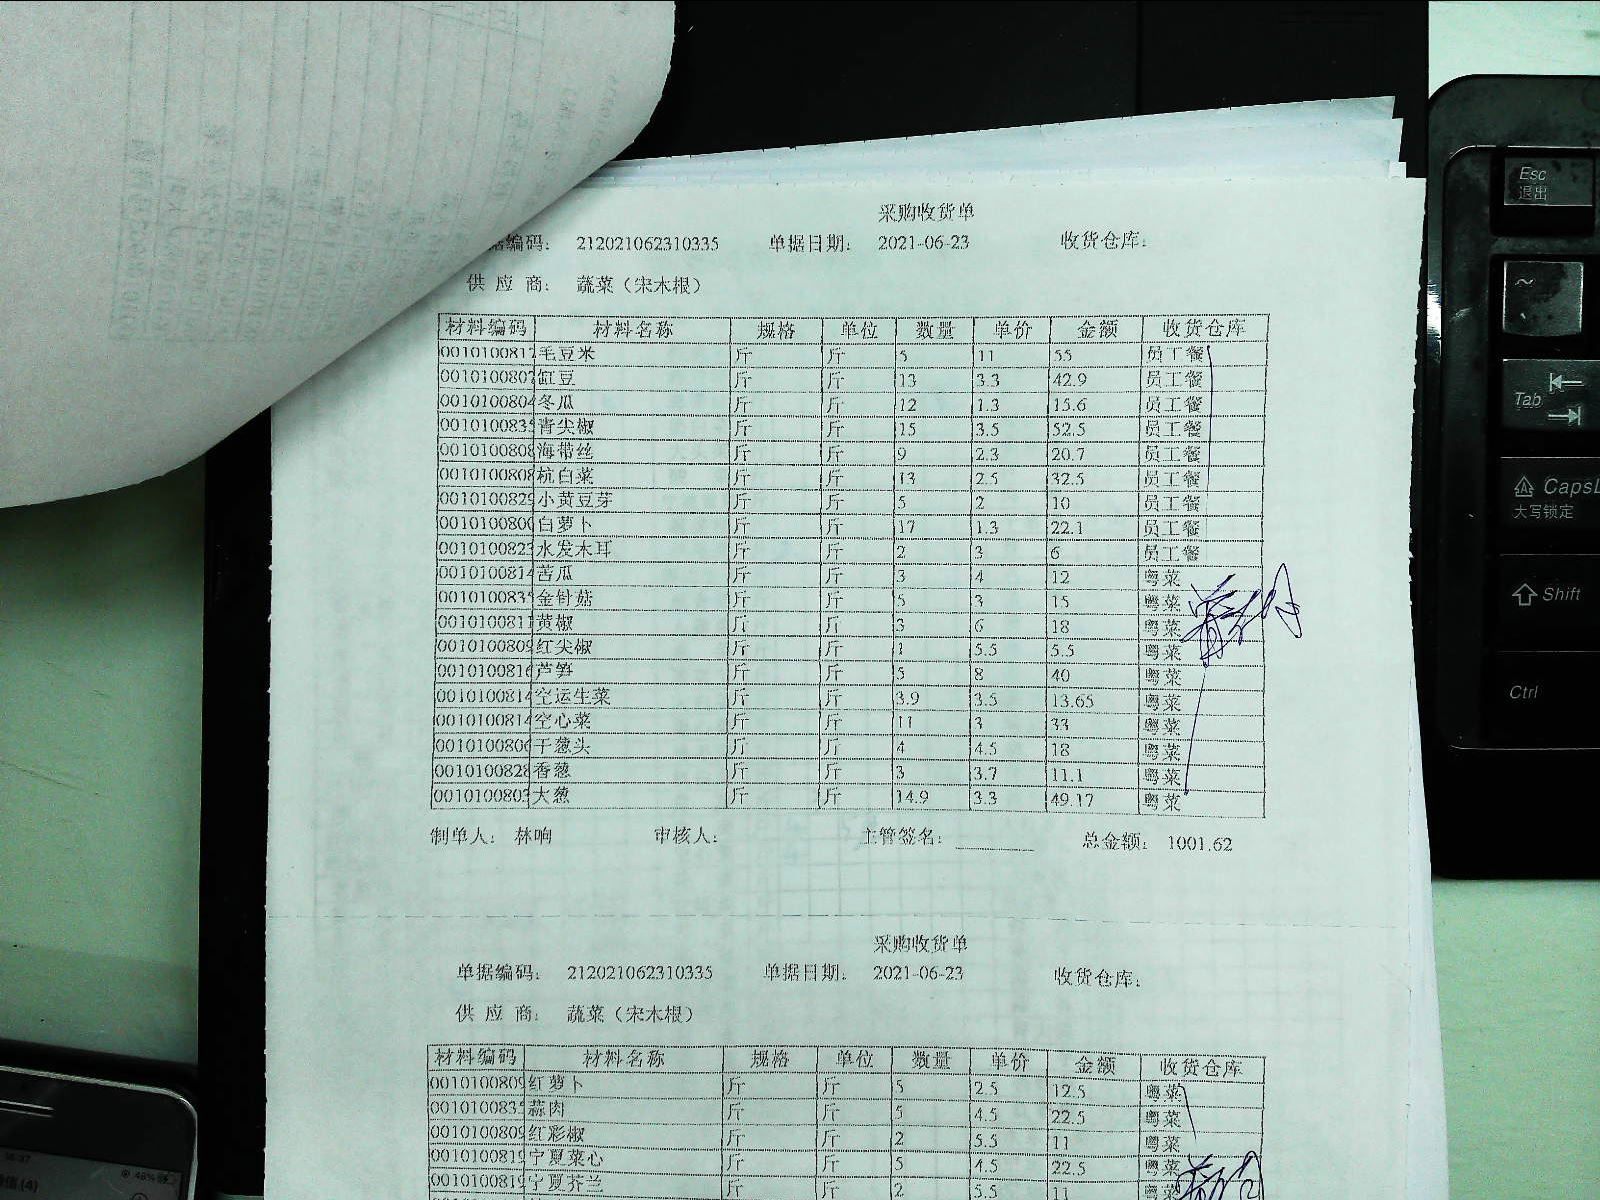 采购收货单
据编码： 212021062310335 单据日期： 2021-06-23 收货仓库：
供 应 商： 蔬菜（宋木根）
材料编码 材料名称 规格 单位 数量 单价 金额 收货仓库
0010100817 毛豆米 斤 斤 5 11 55 员工餐
0010100807 缸豆 斤 斤 13 3.3 42.9 员工餐
0010100804 冬瓜 斤 斤 12 1.3 15.6 员工餐
0010100835 青尖椒 斤 斤 15 3.5 52.5 员工餐
0010100808 海带丝 斤 斤 9 2.3 20.7 员工餐
0010100808 杭白菜 斤 斤 13 2.5 32.5 员工餐
0010100829 小黄豆芽 斤 斤 5 2 10 员工餐
0010100800 白萝卜 斤 斤 17 1.3 22.1 员工餐
0010100823 水发木耳 斤 斤 2 3 6 员工餐
0010100814 苦瓜 斤 斤 3 4 12 粤菜
0010100835 金针菇 斤 斤 5 3 15 粤菜
0010100811 黄椒 斤 斤 3 6 18 粤菜
0010100809 红尖椒 斤 斤 1 5.5 5.5 粤菜
0010100816 芦笋 斤 斤 5 8 40 粤菜
0010100814 空运生菜 斤 斤 3.9 3.5 13.65 粤菜
0010100814 空心菜 斤 斤 11 3 33 粤菜
0010100806 干葱头 斤 斤 4 4.5 18 粤菜
0010100828 香葱 斤 斤 3 3.7 11.1 粤菜
0010100803 大葱 斤 斤 14.9 3.3 49.17 粤菜
制单人： 林响 审核人： 主管签名： 总金额： 1001.62
采购收货单
单据编码： 212021062310335 单据日期： 2021-06-23 收货仓库：
供 应 商： 蔬菜（宋木根）
材料编码 材料名称 规格 单位 数量 单价 金额 收货仓库
0010100809 红萝卜 斤 斤 5 2.5 12.5 粤菜
0010100835 蒜肉 斤 斤 5 4.5 22.5 粤菜
0010100809 红彩椒 斤 斤 2 5.5 11 粤菜
0010100819 宁夏菜心 斤 斤 5 4.5 22.5 粤菜
0010100819 宁夏芥兰 斤 斤 2 5.5 11 粤菜
Esc
退出
~
Tab
CapsL
大写锁定
Shift
Ctrl
16:37
48%
微信(4)